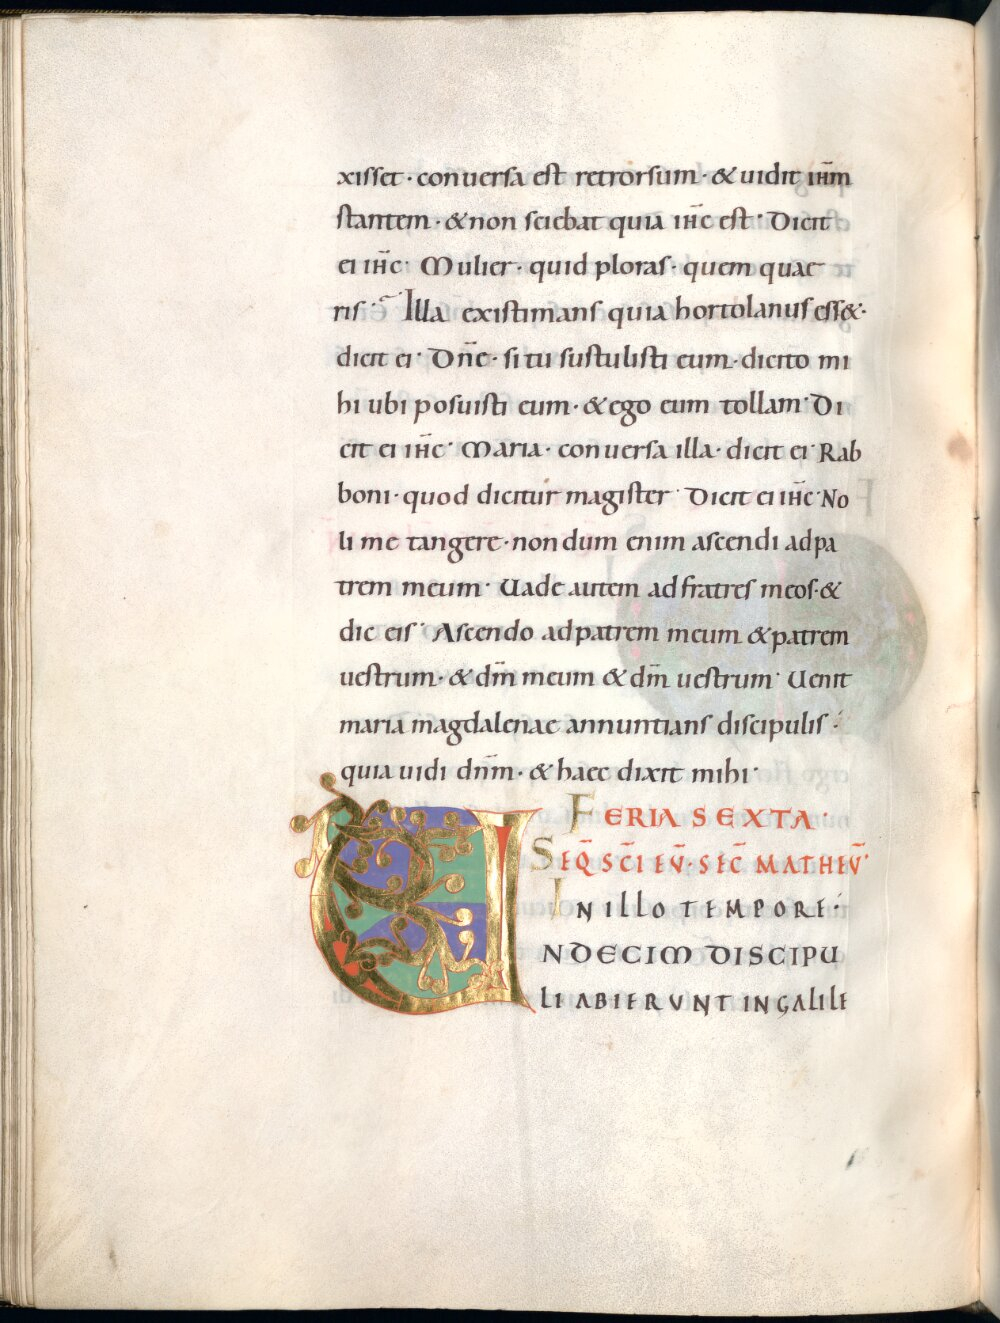 xisset · conuersa est retrorsum · & uidit ihm̅
stantem · & non sciebat quia ihc̅ est · Dicit
ei ihc̅ · Mulier · quid ploras · quem quae
ris · Illa existimans quia hortolanusess& ·
dicit ei · Dn̅e · si tu sustulisti eum · dicito mi
hi ubi posuisti eum · & ego eum tollam · Di
cit ei ihc̅ · Maria · conuersa illa · dicit ei · Rab
boni · quod dicitur magister · Dicit ei ihc̅ · No
li me tangere · nondum enim ascendi ad pa
trem meum · Uade autem ad fratres meos · &
dic eis · Ascendo ad patrem meum & patrem
uestrum · & dm̅ meum & dm̅ uestrum · Uenit
maria magdalenae annuntians discipulis ·
quia uidi dnm̅ · & haec dixit mihi ·
FERIA SEXTA
SEQ̅ SC̅I EV̅ · SEC̅ MATHEV̅ ·
IN ILLO TEMPORE ·
UNDECIM DISCIPU
LI ABIERUNT IN GALILE